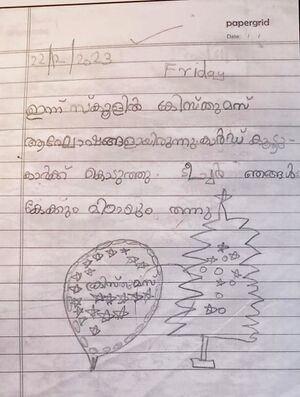 papergrid
Date: / /
22/12/2023
Friday
ഇന്ന് സ്കൂളിൽ ക്രിസ്തുമസ്
ആഘോഷങ്ങളായിരുന്നു. കാർഡ് കൂട്ടു-
കാർക്ക് കൊടുത്തു. ടീച്ചർ ഞങ്ങൾ
കേക്കും മിഠായും തന്നു
ക്രിസ്തുമസ്